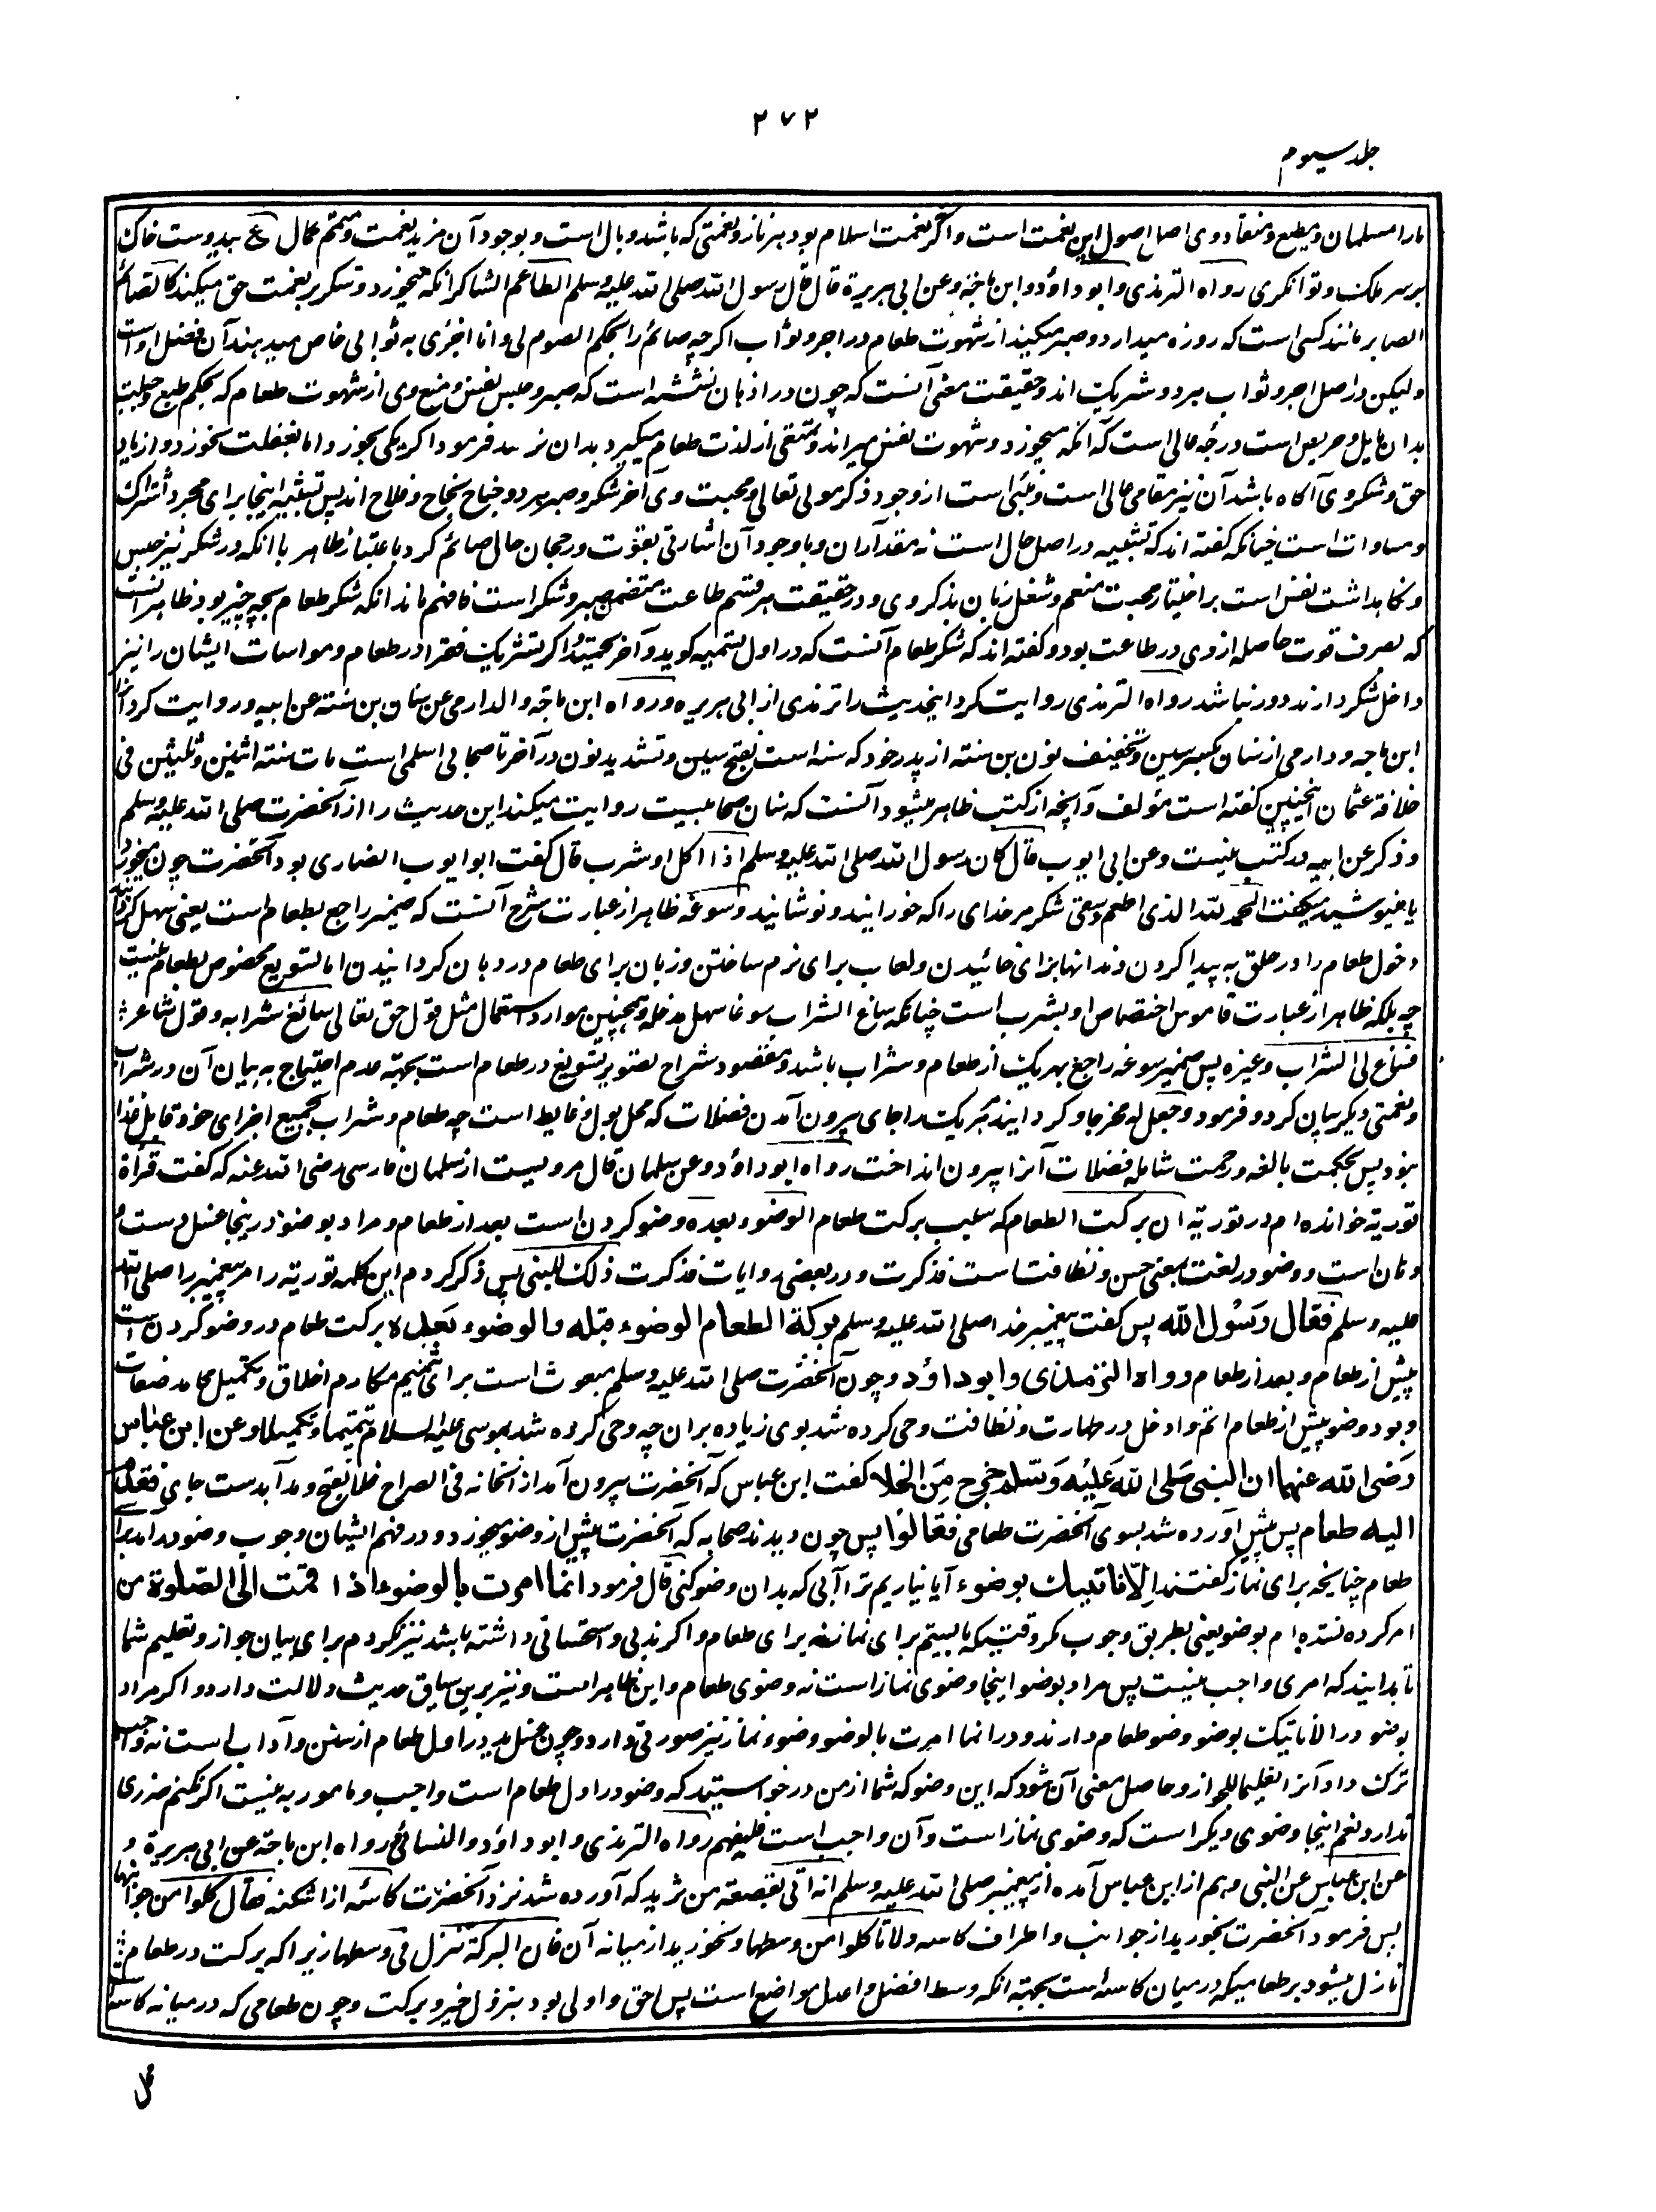 ۲۷۲
جلد سیوم
ما را مسلمان و مطیع و منقاد وی اصل اصول این نعمت است و اگر نعمت اسلام بود هر ناز و نعمتی که باشد وبال است و بوجود آن مزید نعمت و متمم کمال ع بیدوست خاک
بر سر ملک و توانگری رواه الترمذی و ابو داؤد و ابن ماجة وعن ابی هریرة قال قال رسول الله صلی الله علیه وسلم الطاعم الشاکر آنکه میخورد و شکر بر نعمت حق میکند کالصائم
الصابر مانند کسی است که روزه میدارد و صبر میکند از شهوت طعام در اجر و ثواب اگرچه صائم را بحکم الصوم لی وانا اجزی به ثوابی خاص میدهند آن فضل او است
ولیکن در اصل اجر و ثواب هر دو شریک اند و حقیقت معنی آنست که چون در اذهان نشسته است که صبر و حبس نفس و منع وی از شهوت طعام که بحکم طبع و جبلت
بدان مایل و حریص است درجه عالی است که آنکه میخورد و شهوت نفس میراند و تمتعی از لذت طعام میگیرد بدان نرسد فرمود اگر یکی بخورد اما بغفلت نخورد و از یاد
حق و شکر وی آگاه باشد آن نیز مقامی عالی است و مبنی است از وجود ذکر مولی تعالی و محبت وی آخر شکر و صبر هر دو جناح نجاح و فلاح اند پس تشبیه اینجا برای مجرد اشتراک
و مساوات است چنانکه گفته اند که تشبیه در اصل حال است نه مقدار آن و با وجود آن اشارتی بقوت و رجحان حال صائم کرد باعتبار ظاهر با آنکه در شکر نیز حبس
و نگاهداشت نفس است بر اختیار محبت منعم و شغل زبان بذکر وی و در حقیقت هر قسم طاعت متضمن صبر و شکر است فافهم ماند آنکه شکر طعام بچه چیز بود ظاهر آنست
که بصرف قوت حاصله از وی در طاعت بود و گفته اند که شکر طعام آنست که در اول تسمیه گوید و آخر تحمید و اگر تشریک فقرا در طعام و مواسات ایشان را نیز
داخل شکر دارند دور نباشد رواه الترمذی روایت کرد اینحدیث را ترمذی از ابی هریره ورواه ابن ماجة والدارمی عن سنان بن سنة عن ابیه و روایت کرد آنرا
ابن ماجه و دارمی از سنان بکسر سین و تخفیف نون بن سنة از پدر خود که سنه است بفتح سین و تشدید نون در آخر تا صحابی اسلمی است مات سنة اثنین وثلثین فی
خلافة عثمان اینچنین گفته است مؤلف و آنچه از کتب ظاهر میشود آنست که سنان صحابیست روایت میکند این حدیث را از آنحضرت صلی الله علیه وسلم
و ذکر عن ابیه در کتب نیست وعن ابی ایوب قال کان رسول الله صلی الله علیه وسلم اذا اکل او شرب قال گفت ابو ایوب انصاری بود آنحضرت چون میخورد
یا مینوشید میگفت الحمد لله الذی اطعم وسقی شکر مر خدای را که خورانید و نوشانید وسوغه ظاهر از عبارت شرح آنست که ضمیر راجع بطعام است یعنی سهل گردانید
دخول طعام را در حلق به پیدا کردن دندانها برای خائیدن و لعاب برای نرم ساختن و زبان برای طعام در دهان گردانیدن اما تسویغ مخصوص بطعام نیست
چه بلکه ظاهر از عبارت قاموس اختصاص او بشرب است چنانکه ساغ الشراب سوغا سهل مدخله و همچنین موارد استعمال مثل قول حق تعالی سائغ شرابه و قول شاعر ؛
فساغ لی الشراب و غیره پس ضمیر سوغه راجع بهر یک از طعام و شراب باشد و مقصود شراح تصویر تسویغ در طعام است بجهة عدم احتیاج به بیان آن در شراب
و نعمتی دیگر بیان کرد و فرمود وجعل له مخرجا و گردانید هر یک را جای بیرون آمدن فضلات که محل بول و غایط است چه طعام و شراب بجمیع اجزای خود قابل غذا
نبود پس بحکمت بالغه و رحمت شامله فضلات آنرا بیرون انداخت رواه ابو داؤد وعن سلمان قال مرویست از سلمان فارسی رضی الله عنه که گفت قرأة
توریة خوانده ام در توریة ان برکت الطعام که سبب برکت طعام الوضوء بعده وضو کردن است بعد از طعام و مراد بوضو درینجا غسل دست و
دهان است و وضو در لغت بمعنی حسن و نظافت است فذکرت و در بعضی روایات فذکرت ذلک للنبی پس ذکر کردم این کلمه توریة را مر پیغمبر را صلی الله
علیه وسلم فقال رسول الله پس گفت پیغمبر خدا صلی الله علیه وسلم برکة الطعام الوضوء قبله والوضوء بعده برکت طعام در وضو کردن است
پیش از طعام و بعد از طعام رواه الترمذی وابو داؤد و چون آنحضرت صلی الله علیه وسلم مبعوث است برای تتمیم مکارم اخلاق و تکمیل محامد صفات
و بود وضو پیش از طعام اتم و ادخل در طهارت و نظافت وحی کرده شد بوی زیاده بر آن چه وحی کرده شد بموسی علیه السلام تتمیما و تکمیلا وعن ابن عباس
رضی الله عنهما ان النبی صلی الله علیه وسلم خرج من الخلا گفت ابن عباس که آنحضرت بیرون آمد از آنخانه فی الصراح خلا بفتح و مد آبدست جای فقدم
الیه طعام پس پیش آورده شد بسوی آنحضرت طعامی فقالوا پس چون دیدند صحابه که آنحضرت پیش از وضو میخورد و در فهم ایشان وجوب وضو در آمد برای
طعام چنانچه برای نماز گفتند الا ناتیک بوضوء آیا نیاریم ترا آبی که بدان وضو کنی قال فرمود انما امرت بالوضوء اذا قمت الی الصلوة من
امر کرده نشده ام بوضو یعنی بطریق وجوب مگر وقتیکه بایستم برای نماز نه برای طعام و اگر ندبی و استحسانی داشته باشد نیز نکردم برای بیان جواز و تعلیم شما
تا بدانید که امری واجب نیست پس مراد بوضو اینجا وضوی نماز است نه وضوی طعام و این ظاهر است و نیز برین سیاق حدیث دلالت دارد و اگر مراد
بوضو در الا ناتیک بوضو وضو طعام دارند و در انما امرت بالوضو وضوء نماز نیز صورتی دارد و چون غسل ید در اول طعام از سنن و آداب است نه واجب
ترک داد آنرا تعلیما للجواز و حاصل معنی آن شود که این وضو که شما از من درخواستید که وضو در اول طعام است واجب و مامور به نیست اگر نکنم ضرری
ندارد نعم اینجا وضوی دیگر است که وضوی نماز است و آن واجب است فلیفهم رواه الترمذی وابو داؤد والنسائی ورواه ابن ماجة عن ابی هریرة و
عن ابن عباس عن النبی و هم از ابن عباس آمده از پیغمبر صلی الله علیه وسلم انه اتی بقصعة من ثرید که آورده شد نزد آنحضرت کاسه از اشکنه فقال کلوا من جوانبها
پس فرمود آنحضرت بخورید از جوانب و اطراف کاسه ولا تاکلوا من وسطها و نخورید از میانه آن فان البرکة تنزل فی وسطها زیرا که برکت در طعام
نازل میشود بر طعامیکه در میان کاسه است بجهة آنکه وسط افضل و اعدل مواضع است پس احق و اولی بود بنزول خیر و برکت و چون طعامی که در میانه کاسه